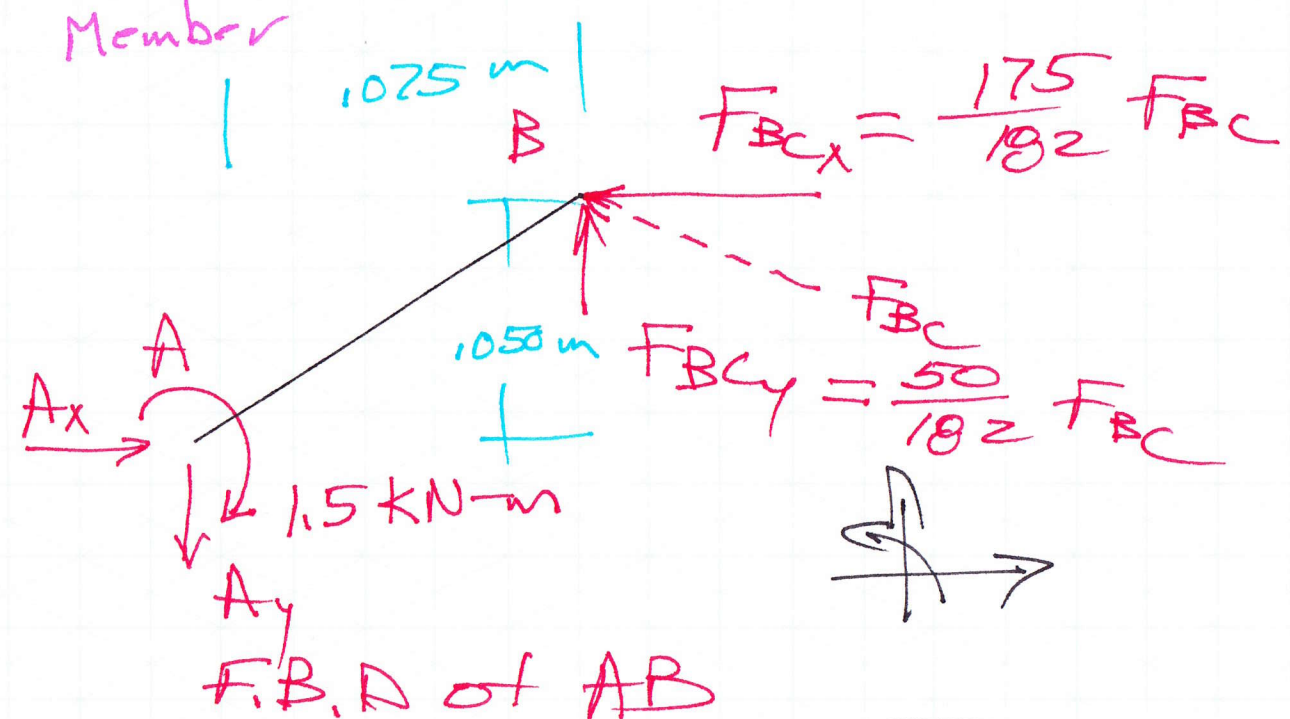 Member
.075 m
B
F_BCx = 175/182 F_BC
F_BC
.050 m
F_BCy = 50/182 F_BC
A
Ax
1.5 KN-m
Ay
F.B.D of AB